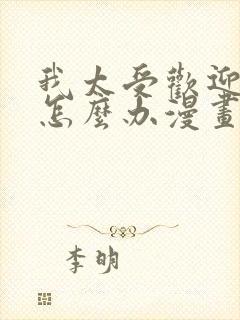 我太受歡迎
怎麼办漫畫
李明